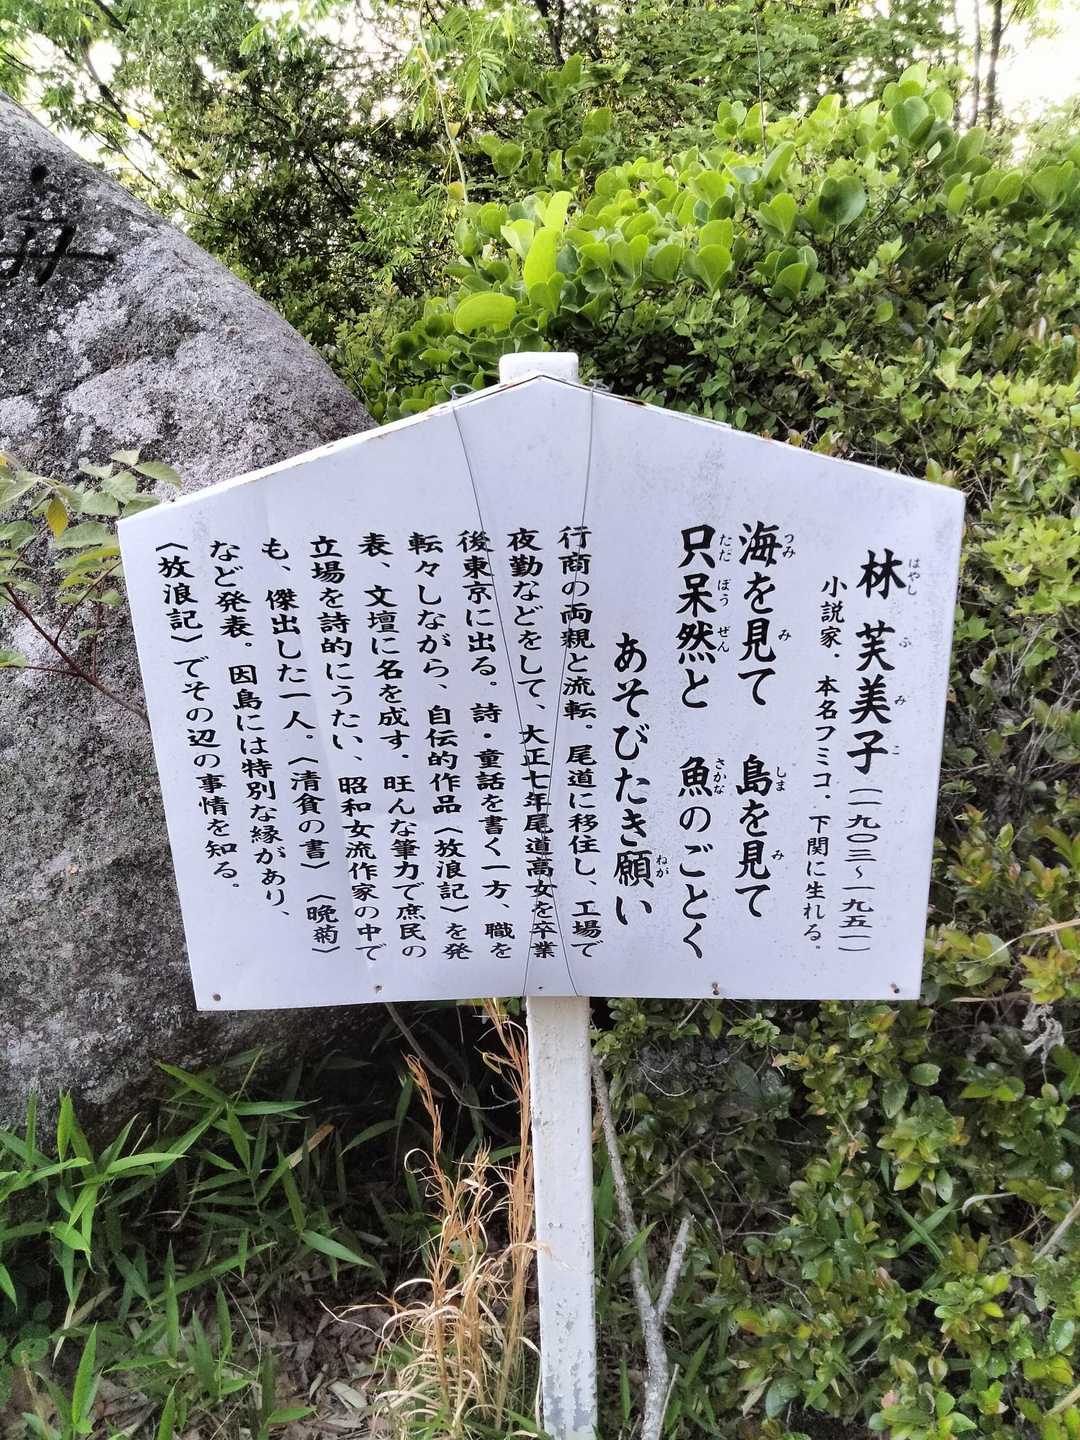 林 芙美子（一九〇三～一九五一）
小説家．本名フミコ．下関に生れる。
海を見て　島を見て
只呆然と　魚のごとく
あそびたき願い
行商の両親と流転。尾道に移住し、工場で
夜勤などをして、大正七年尾道高女を卒業
後東京に出る。詩・童話を書く一方、職を
転々しながら、自伝的作品〈放浪記〉を発
表、文壇に名を成す。旺んな筆力で庶民の
立場を詩的にうたい、昭和女流作家の中で
も、傑出した一人。〈清貧の書〉〈晩菊〉
など発表。因島には特別な縁があり、
〈放浪記〉でその辺の事情を知る。